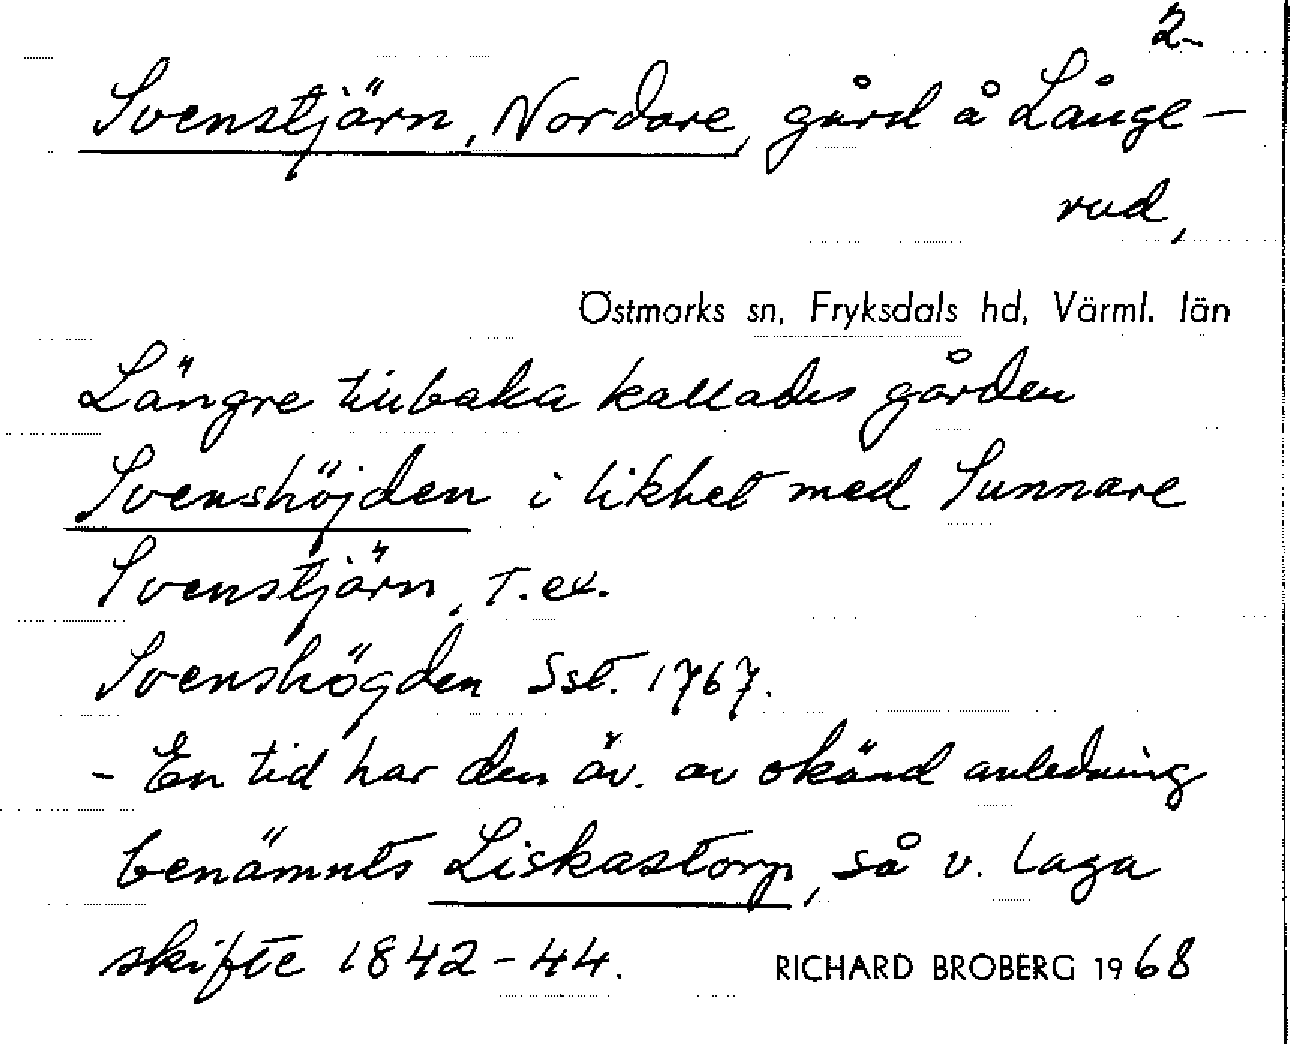 2-
Svenstjärn, Nordare, gård å Långe-
rud,
Östmarks sn, Fryksdals hd, Värml. län
Längre tillbaka kallades gården
Svenshöjden i likhet med Sunnare
Svenstjärn, T.ex.
Svenshögden Sst. 1767.
- En tid har den äv. av okänd anledning
benämnts Liskastorp, så v. laga
skifte 1842-44.
RICHARD BROBERG 1968